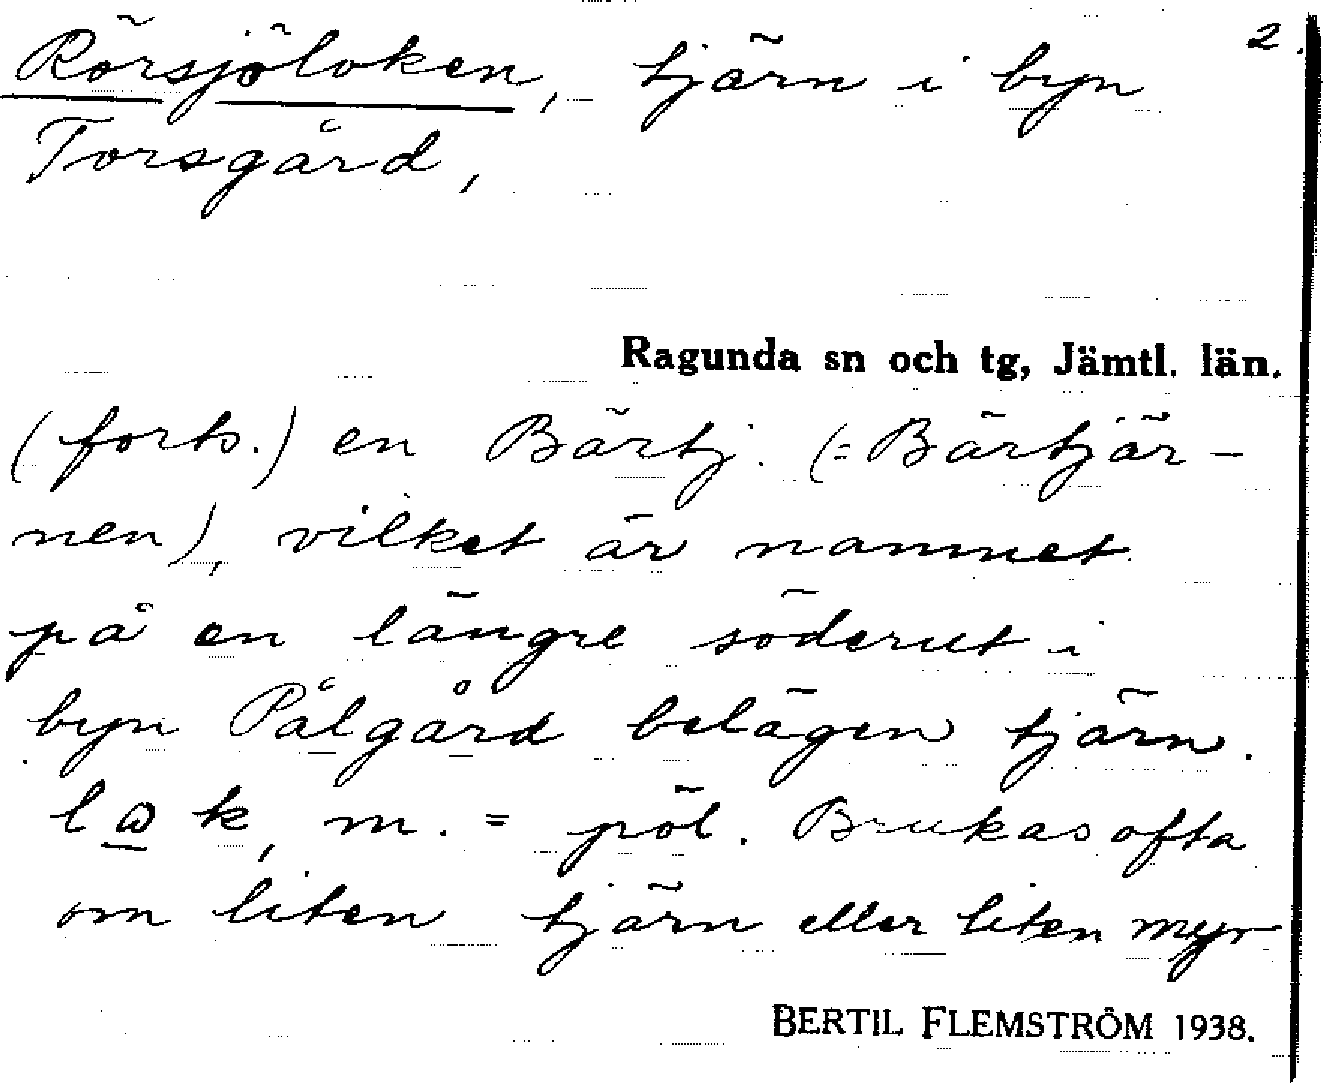 Rörsjöloken, tjärn i byn 2.
Torsgård,
Ragunda sn och tg, Jämtl. län.
(forts.) en Bärtj. (= Bärtjär-
nen), vilket är namnet
på en längre söderut i
byn Pålgård belägen tjärn.
lωk, m. = pöl. Brukas ofta
om liten tjärn eller liten myr
BERTIL FLEMSTRÖM 1938.